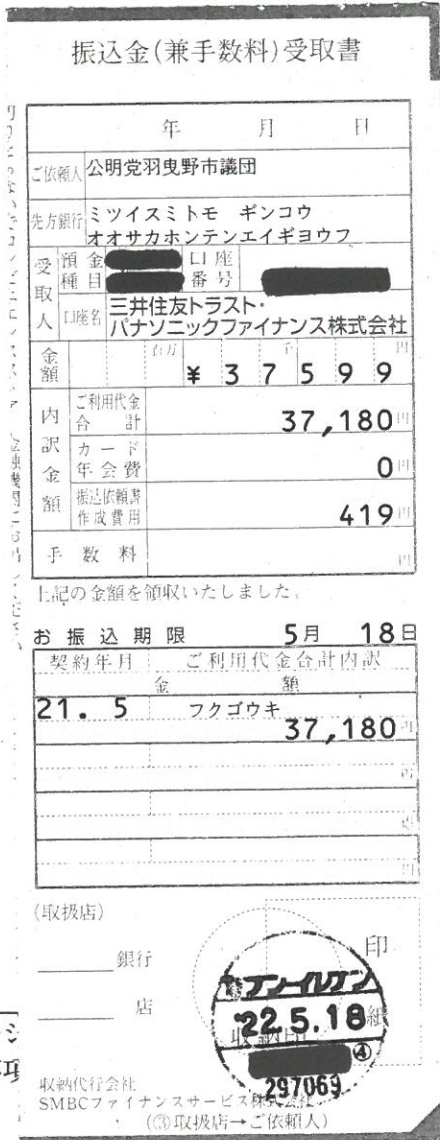 振込金(兼手数料)受取書
年 月 日
ご依頼人 公明党羽曳野市議団
先方銀行 ミツイスミトモ ギンコウ
オオサカホンテンエイギヨウフ
受取人 預金種目 口座番号
口座名 三井住友トラスト・
パナソニックファイナンス株式会社
金額 百万 千 円
¥37599
内訳金額 ご利用代金合計 37,180円
カード年会費 0円
振込依頼書作成費用 419円
手数料 円
上記の金額を領収いたしました。
お振込期限 5月 18日
契約年月 ご利用代金合計内訳
金 額
21. 5 フクゴウキ
37,180円
円
円
円
(取扱店)
銀行
店
印
紙
収納印
'22.5.18
④
297069
収納代行会社
SMBCファイナンスサービス株式会社
(③取扱店→ご依頼人)